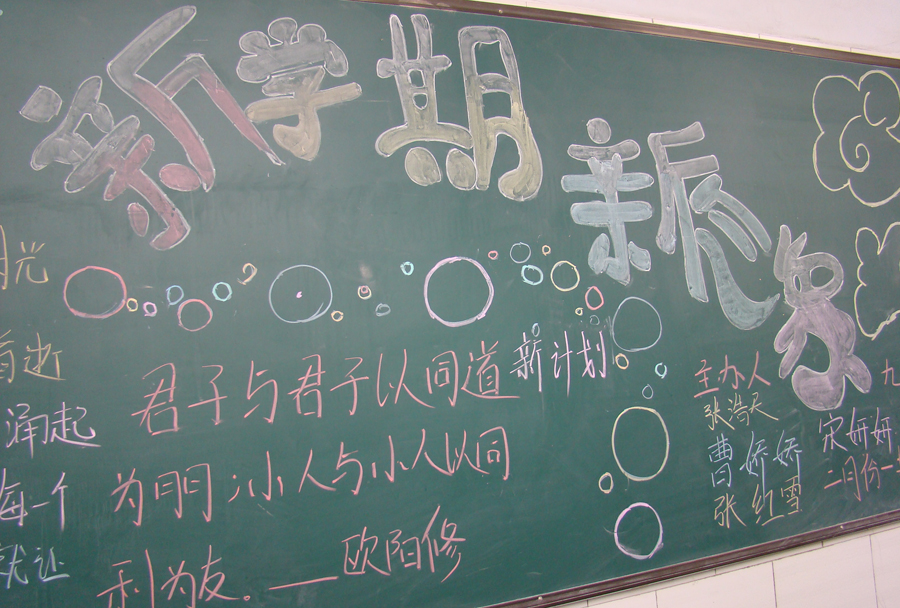 新学期
新气象
君子与君子以同道
为朋;小人与小人以同
利为友。——欧阳修
新计划
涌起
每一个
就让
主办人
张浩天
曹娇娇 宋妍妍
张红雪 二月份一
九